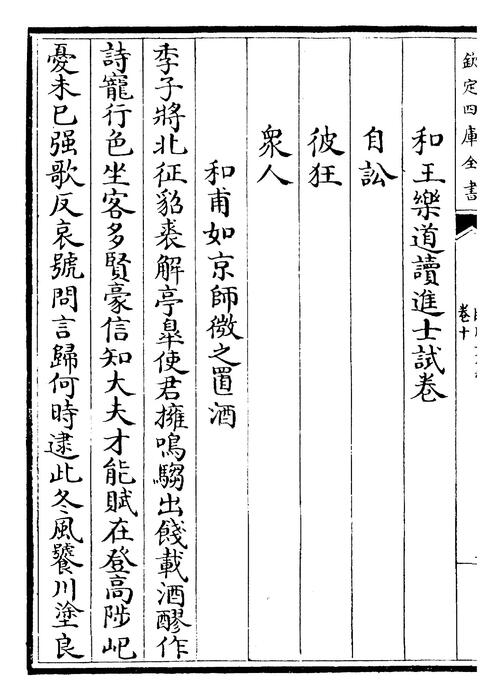 欽定四庫全書
卷十
和王樂道讀進士試卷
自訟
彼狂
衆人
和甫如京師微之置酒
季子將北征貂裘解亭皐使君擁鳴騶出餞載酒醪作
詩寵行色坐客多賢豪信知大夫才能賦在登高陟屺
憂未已强歌反哀號問言歸何時逮此冬風饕川塗良